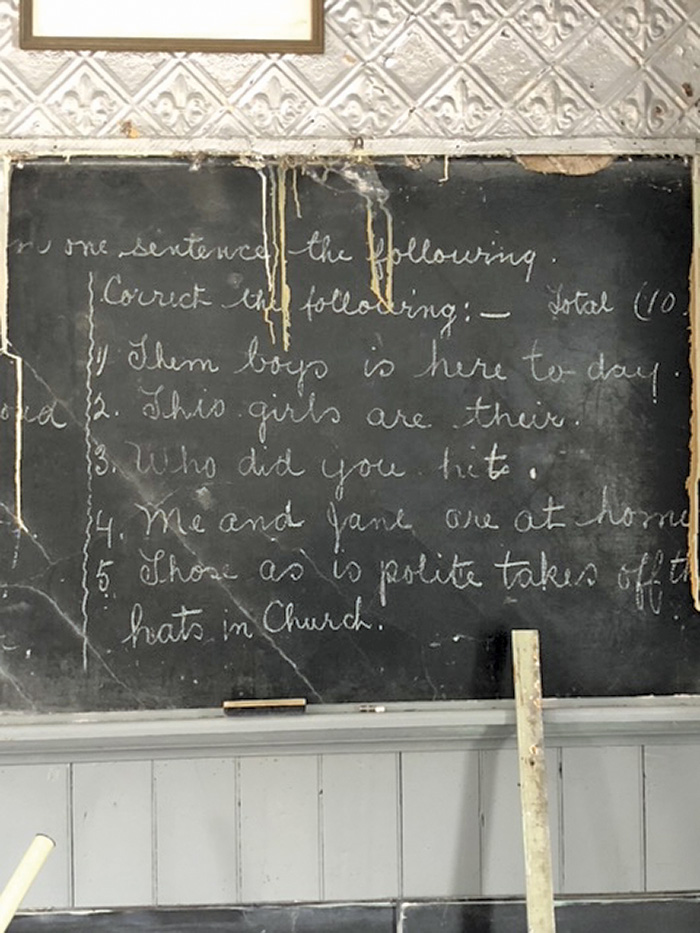 one sentence the following.
Correct the following:— Total (10.
1) Them boys is here to-day.
2. This girls are their.
3. Who did you hit.
4. Me and Jane are at home
5. Those as is polite takes off th
hats in Church.